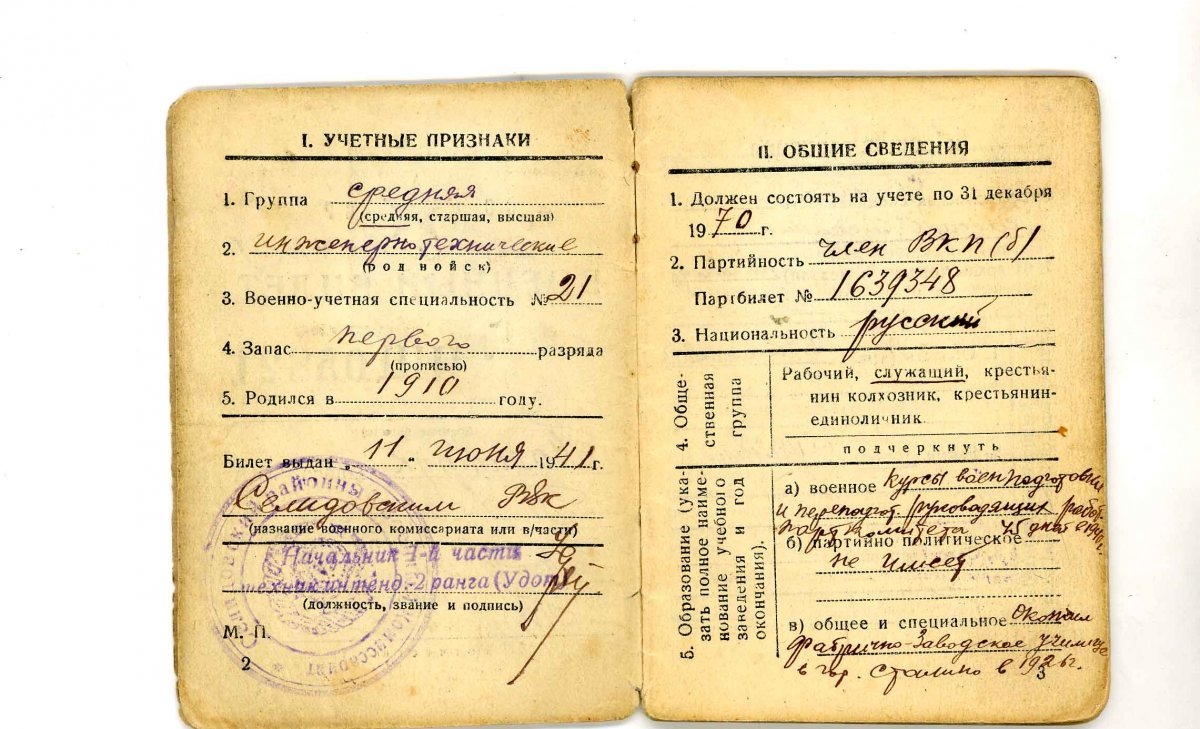 I. УЧЕТНЫЕ ПРИЗНАКИ
1. Группа средняя
(средняя, старшая, высшая)
2. инженерно технические
(род войск)
3. Военно-учетная специальность № 21
4. Запас первого разряда
(прописью)
5. Родился в 1910 году.
Билет выдан „11“ июня 1941 г.
Селидовским РВК
(название военного комиссариата или в/части)
Начальник 1-й части
техник интенд. 2 ранга (Удот)
(должность, звание и подпись)
М. П.
2
II. ОБЩИЕ СВЕДЕНИЯ
1. Должен состоять на учете по 31 декабря
1970 г.
2. Партийность член ВКП(б)
Партбилет № 1639348
3. Национальность русский
4. Обще-
ственная
группа
Рабочий, служащий, крестья-
нин колхозник, крестьянин-
единоличник.
подчеркнуть
5. Образование (ука-
зать полное наиме-
нование учебного
заведения и год
окончания).
а) военное курсы воен подготовки
и перепадгот. руководящих работ.
парткомитета 45 дней в 1940 г.
б) партийно политическое
не имеет
в) общее и специальное Окончил
Фабрично-Заводское училище
в гор. Сталино в 1926 г.
3